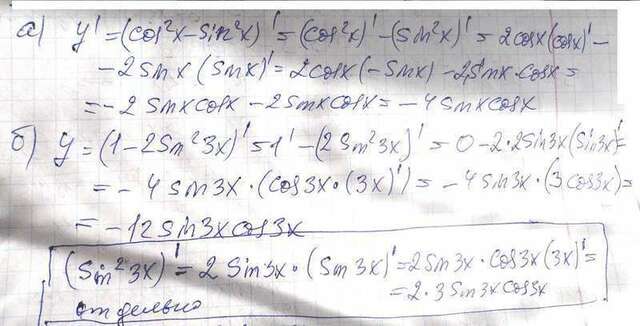 а) y' = (cos²x - sin²x)' = (cos²x)' - (sin²x)' = 2cosx(cosx)' -
- 2sinx(sinx)' = 2cosx(-sinx) - 2sinx·cosx =
= -2sinxcosx - 2sinxcosx = -4sinxcosx
б) y = (1-2sin²3x)' = 1' - (2sin²3x)' = 0 - 2·2sin3x(sin3x)' =
= -4sin3x·(cos3x·(3x)') = -4sin3x·(3cos3x) =
= -12sin3xcos3x
(sin²3x)' = 2sin3x·(sin3x)' = 2sin3x·cos3x(3x)' =
= 2·3sin3xcos3x
отдельно